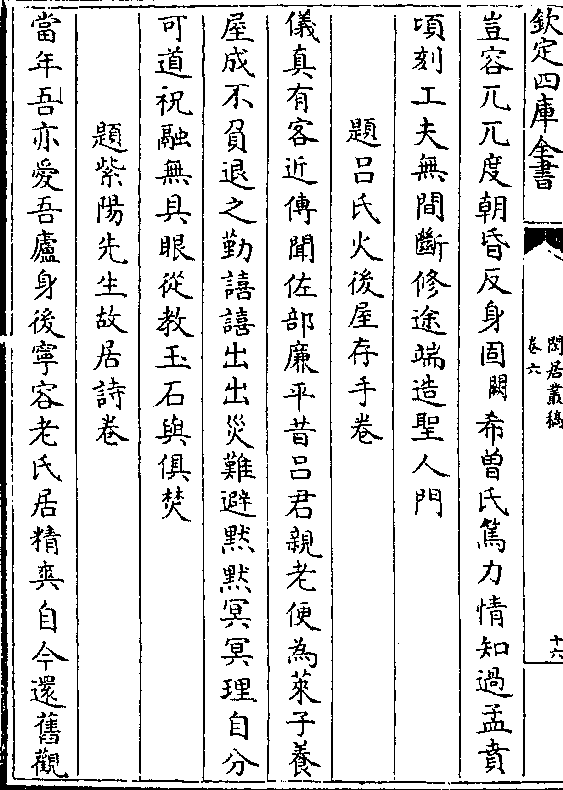 欽定四庫全書
閒居叢稿
卷六
十六
豈容兀兀度朝昏反身固闕希曽氏篤力情知過孟賁
頃刻工夫無間斷修途端造聖人門
題吕氏火後屋存手卷
儀真有客近傳聞佐部廉平昔吕君親老便為萊子養
屋成不負退之勤譆譆出出災難避黙黙冥冥理自分
可道祝融無具眼從教玉石與俱焚
題紫陽先生故居詩卷
當年吾亦愛吾廬身後寧容老氏居精爽自今還舊觀